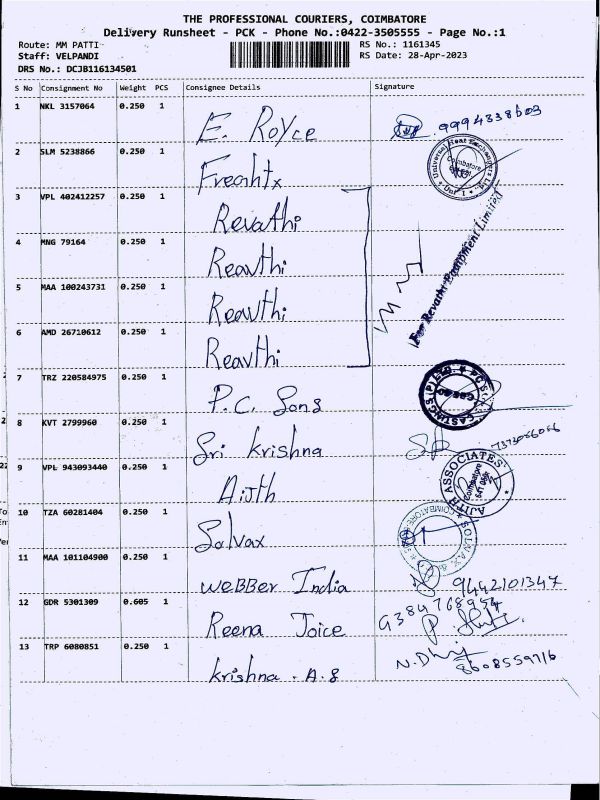 THE PROFESSIONAL COURIERS, COIMBATORE
Delivery Runsheet - PCK - Phone No.:0422-3505555 - Page No.:1
Route: MM PATTI RS No.: 1161345
Staff: VELPANDI RS Date: 28-Apr-2023
DRS No.: DCJB116134501
S No Consignment No Weight PCS Consignee Details Signature
1 NKL 3157064 0.250 1 E. Royce 9994338603
2 SLM 5238866 0.250 1 Freahtx
3 VPL 402412257 0.250 1 Revathi
4 MNG 79164 0.250 1 Reavthi
For Revathi Equipment Limited
5 MAA 100243731 0.250 1 Reavthi
6 AMD 26710612 0.250 1 Reavthi
7 TRZ 220584975 0.250 1 P.C. Sons
8 KVT 2799960 0.250 1 Sri Krishna
9 VPL 943093440 0.250 1 Ajith
AJITH ASSOCIATES
Coimbatore
10 TZA 60281404 0.250 1 Salvax
11 MAA 101104900 0.250 1 Webber India 9442101347
12 GDR 5301309 0.605 1 Reena Joice
13 TRP 6080851 0.250 1 Krishna. A.g 8608559716